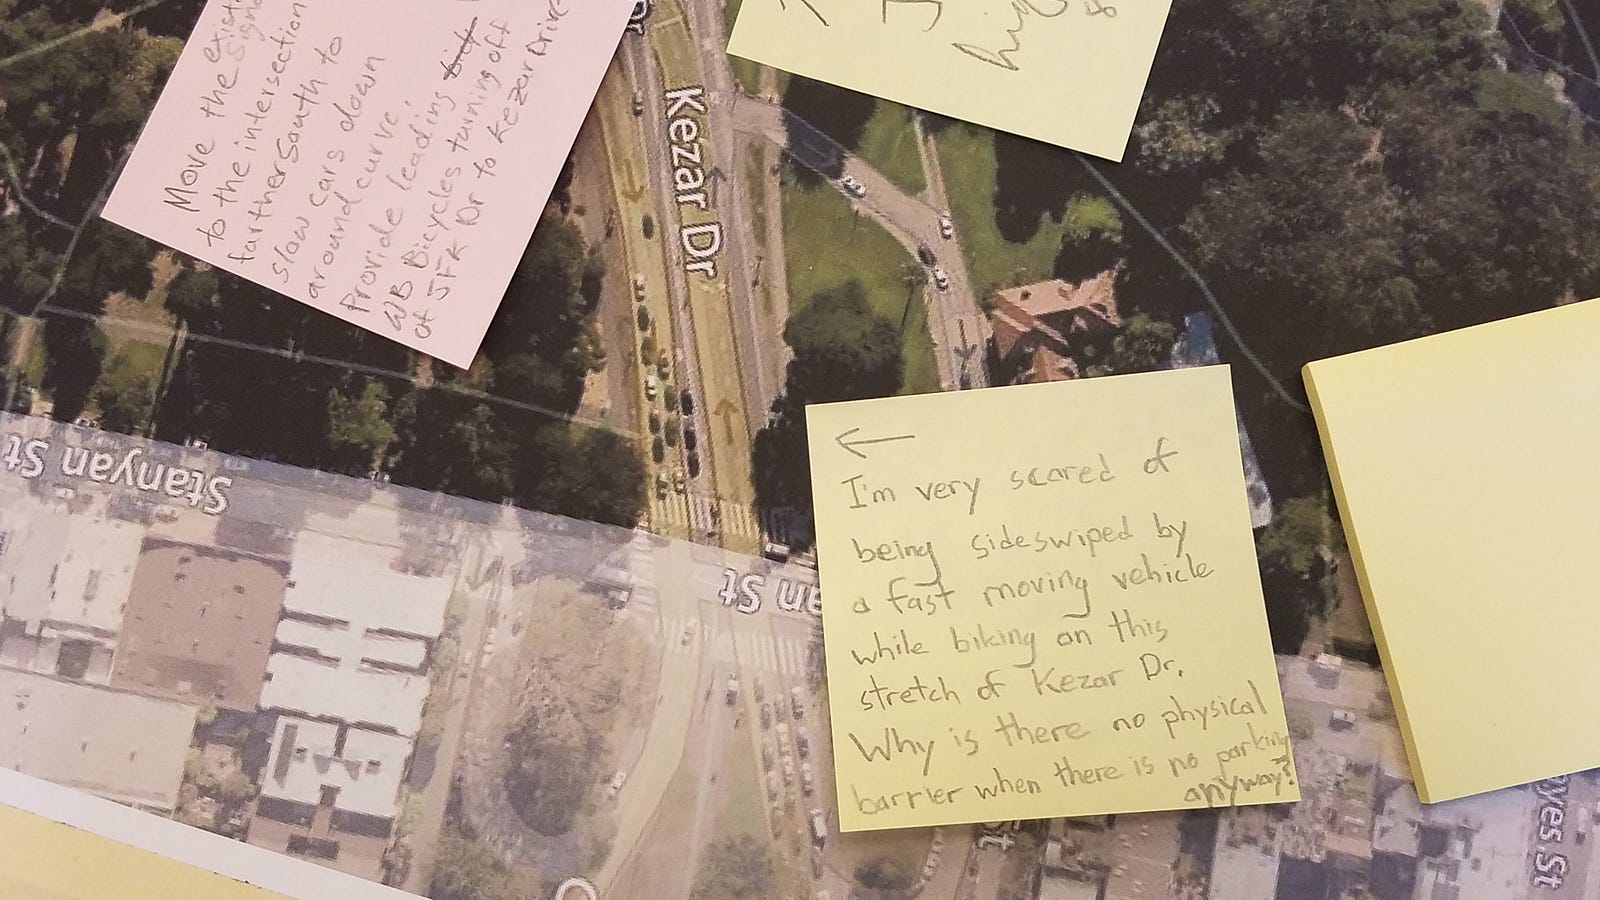 Move the existi
the signa
to the intersection
farther south to
slow cars down
around curve.
Provide leading
WB Bicycles turning off
at JFK Dr to Kezar Drive
hig
8
Dr
Kezar Dr
←
I'm very scared of
being sideswiped by
a fast moving vehicle
while biking on this
stretch of Kezar Dr.
Why is there no physical
barrier when there is no parking
anyway?
Stanyan St
an St
yes St